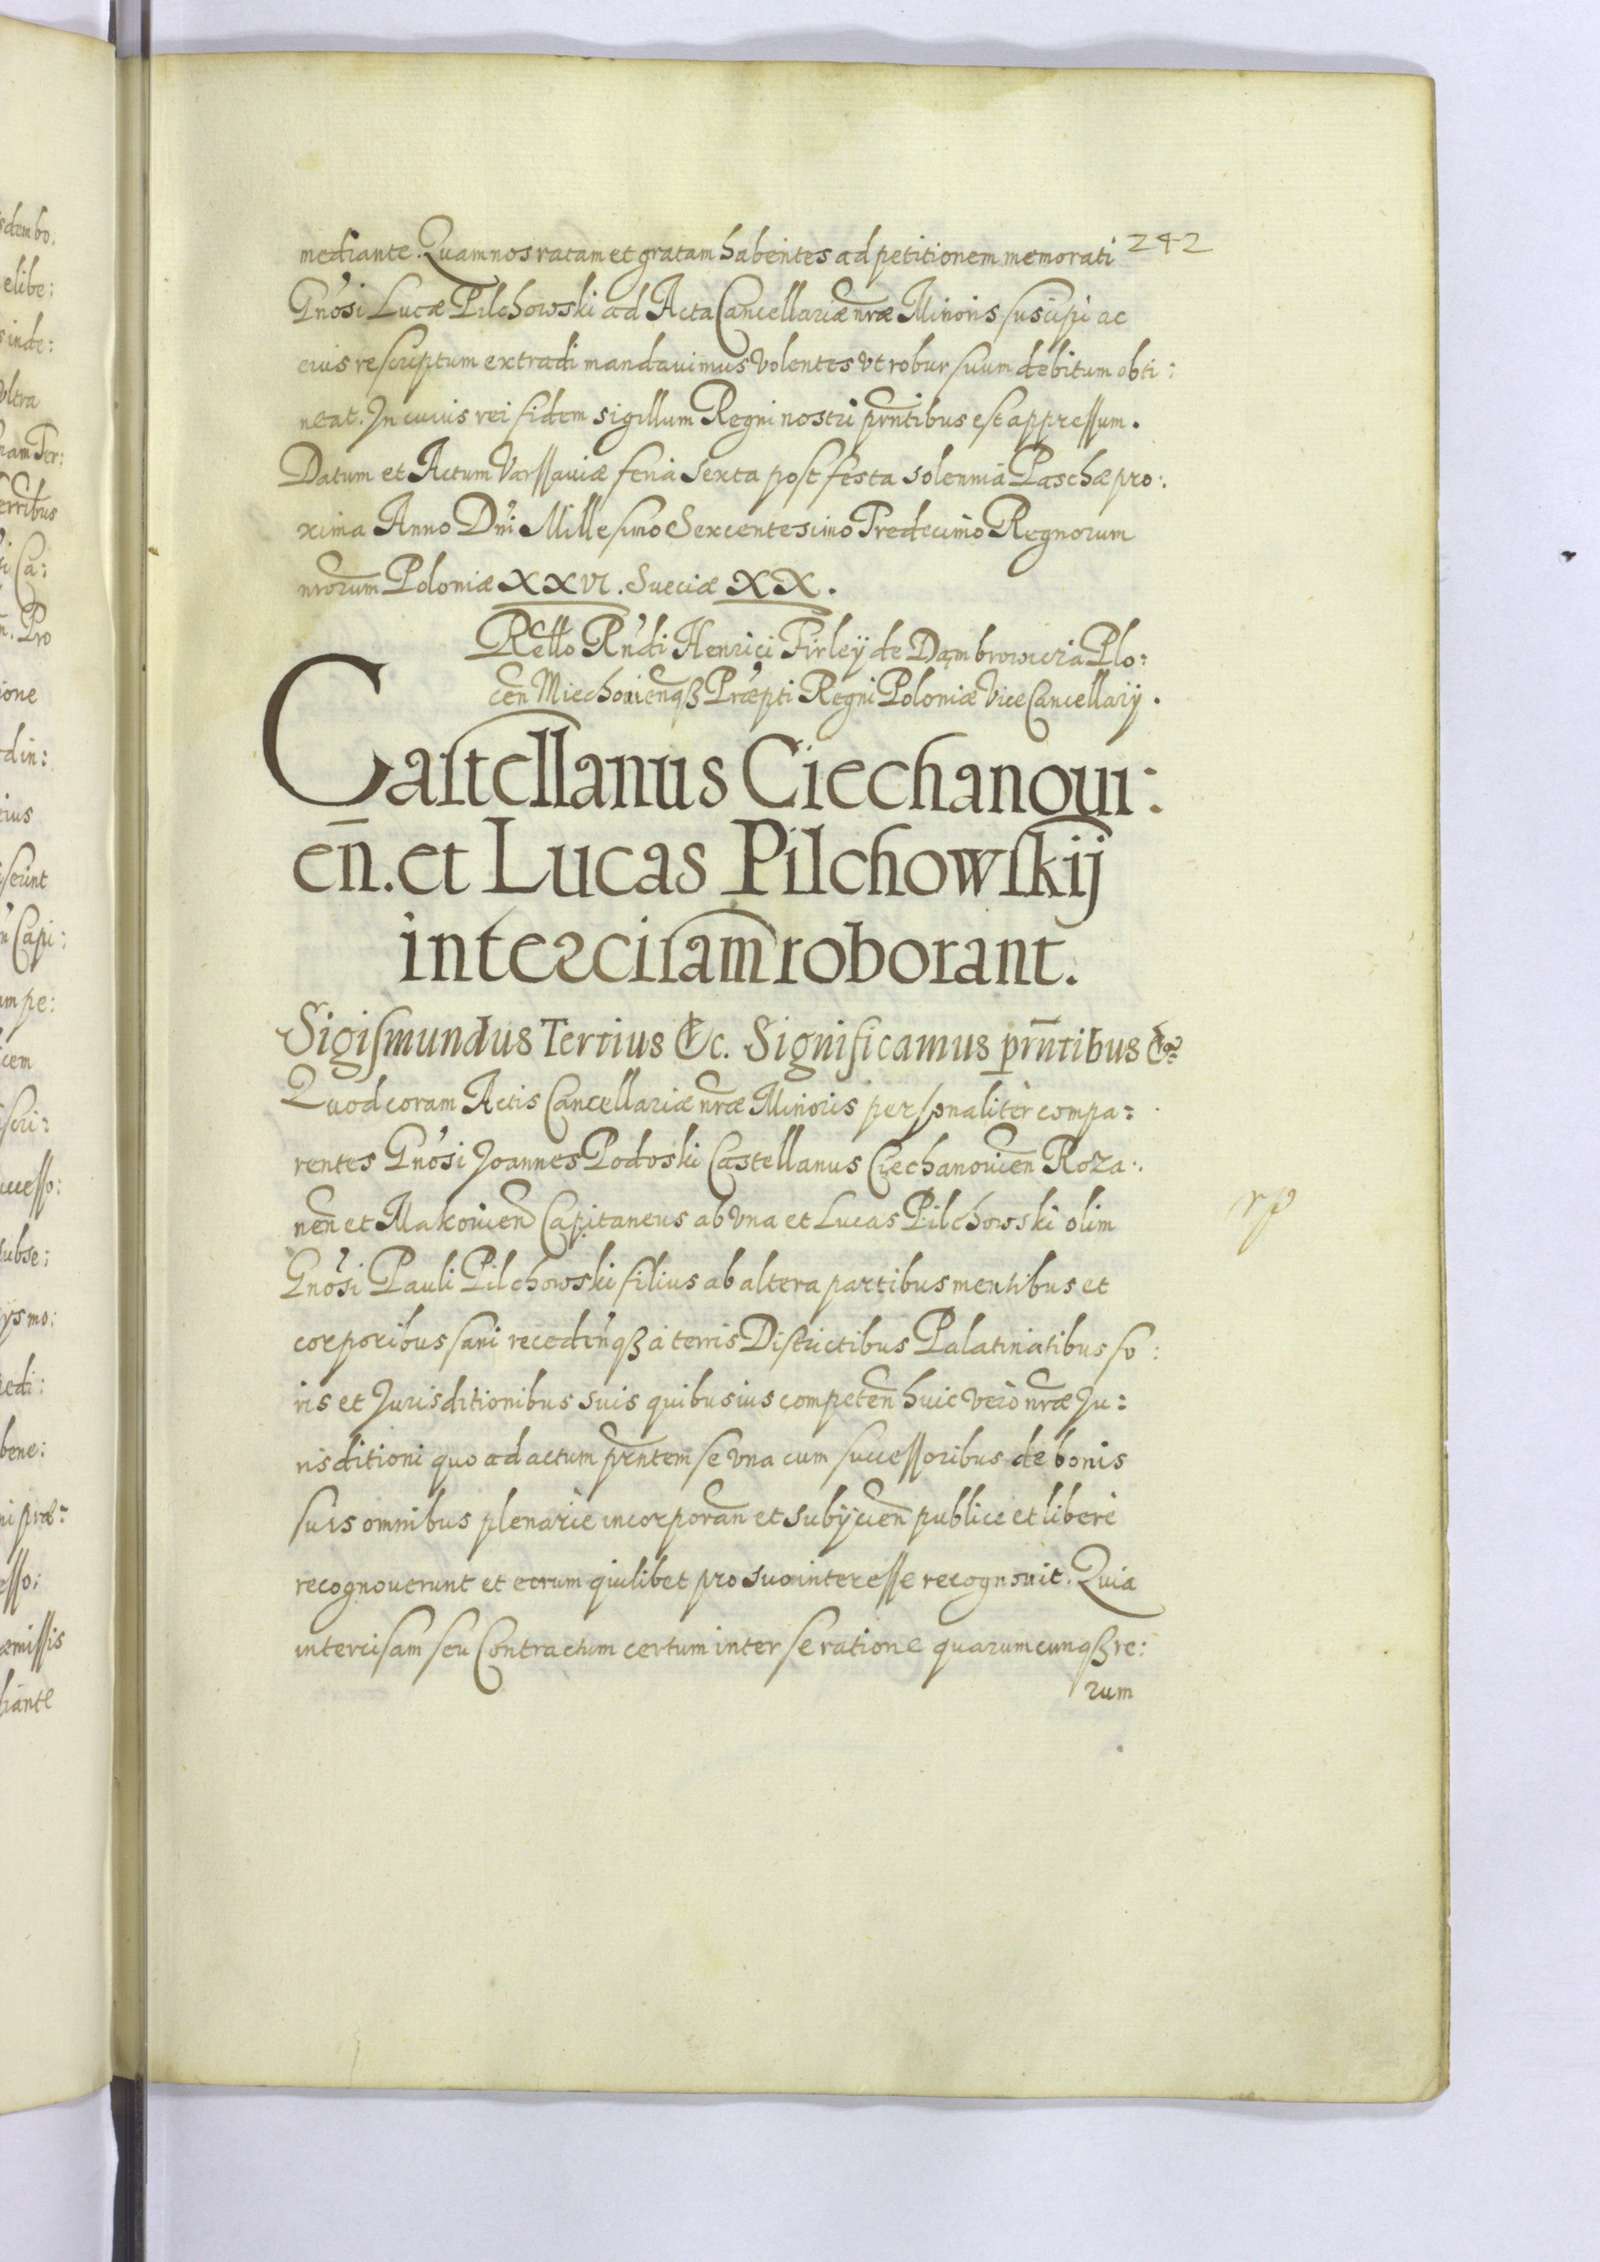 242
mediante. Quam nos ratam et gratam habentes ad petitionem memorati
Gn̄osi Lucæ Pilchowski ad Acta Cancellariæ nr̄æ Minoris suscipi ac
eius rescriptum extradi mandauimus volentes vt robur suum debitum obti:
neat. In cuius rei fidem sigillum Regni nostri prn̄tibus est appressum.
Datum et Actum Varssauiæ feria sexta post festa solennia Paschæ pro:
xima Anno Dn̄i Millesimo Sexcentesimo Tredecimo Regnorum
nr̄orum Poloniæ XXVI. Sueciæ XX.
Rello Rn̄di Henrici Firleÿ de Dąmbrowicza Plo:
cen̄ Miechouien̄qꝫ Præpti Regni Poloniæ ViceCancellarij.
Castellanus Ciechanoui:
en̄. et Lucas Pilchowskij
intercisam roborant.
Sigismundus Tertius &c. Significamus prn̄tibus &c
Quod coram Actis Cancellariæ nr̄æ Minoris personalitèr compa:
rentes Gn̄osi Joannes Podoski Castellanus Ciechanouien̄ Roza:
nen̄ et Makouien̄ Capitaneus ab vna et Lucas Pilchowski olim
Gn̄osi Pauli Pilchowski filius ab altera partibus mentibus et
corporibus sani recedēn̄qꝫ à terris Districtibus Palatinatibus fo:
ris et Jurisditionibus suis quibusuis competen̄ huic verò nr̄æ Ju:
risditioni quo ad actum prn̄tem se vna cum successoribus de bonis
suis omnibus plenariè incorporan̄ et subÿcien̄ publicè et liberè
recognouerunt et eorum quilibet pro suo interesse recognouit. Quia
intercisam seu Contractum certum inter se ratione quarumcunqꝫ re:
rum